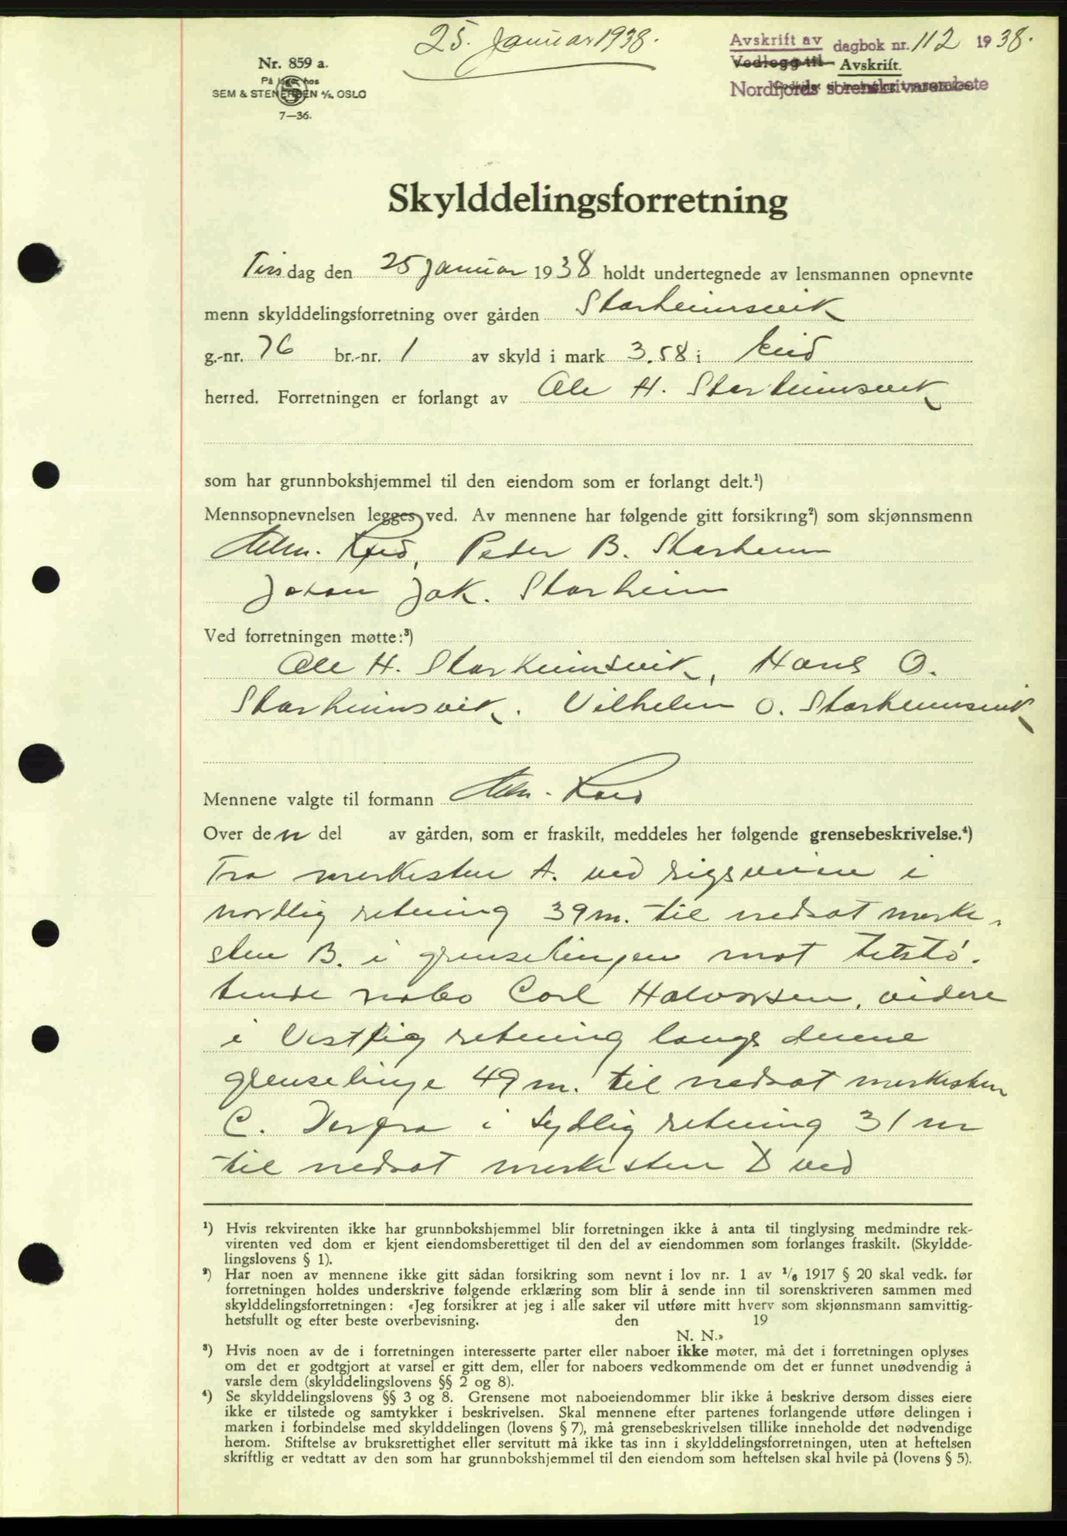 25. Januar 1938.
Avskrift av dagbok nr. 112 1938.
Vedlegg til Avskrift.
Nordfjords sorenskriverembete
Nr. 859 a.
På lager hos
SEM & STENERSEN A/S, OSLO
7—36.
Skylddelingsforretning
Tirsdag den 25 januar 1938 holdt undertegnede av lensmannen opnevnte
menn skylddelingsforretning over gården Starheimsvik
g.-nr. 76 br.-nr. 1 av skyld i mark 3.58 i Eid
herred. Forretningen er forlangt av Ole H. Starheimsvik
som har grunnbokshjemmel til den eiendom som er forlangt delt.¹)
Mennsopnevnelsen legges ved. Av mennene har følgende gitt forsikring²) som skjønnsmenn
Peder B. Starheim
Johan Jak. Starheim
Ved forretningen møtte:³)
Ole H. Starheimsvik, Hans O.
Starheimsvik. Vilhelm O. Starheimsvik
Mennene valgte til formann
Over den del av gården, som er fraskilt, meddeles her følgende grensebeskrivelse.⁴)
Fra merkesten A. ved rigsveien i
nordlig retning 39 m. til nedsat merke-
sten B. i grenselinjen mot tilstø-
tende nabo Carl Halvorsen, videre
i Vestlig retning langs denne
grenselinje 49 m. til nedsat merkesten
C. Derfra i sydlig retning 31 m
til nedsat merkesten D ved
¹) Hvis rekvirenten ikke har grunnbokshjemmel blir forretningen ikke å anta til tinglysing medmindre rek-
virenten ved dom er kjent eiendomsberettiget til den del av eiendommen som forlanges fraskilt. (Skyldde-
lingslovens § 1).
²) Har noen av mennene ikke gitt sådan forsikring som nevnt i lov nr. 1 av ¹/₆ 1917 § 20 skal vedk. før
forretningen holdes underskrive følgende erklæring som blir å sende inn til sorenskriveren sammen med
skylddelingsforretningen: «Jeg forsikrer at jeg i alle saker vil utføre mitt hverv som skjønnsmann samvittig-
hetsfullt og efter beste overbevisning. den 19
N. N.»
³) Hvis noen av de i forretningen interesserte parter eller naboer ikke møter, må det i forretningen oplyses
om det er godtgjort at varsel er gitt dem, eller for naboers vedkommende om det er funnet unødvendig å
varsle dem (skylddelingslovens §§ 2 og 8).
⁴) Se skylddelingslovens §§ 3 og 8. Grensene mot naboeiendommer blir ikke å beskrive dersom disses eiere
ikke er tilstede og samtykker i beskrivelsen. Skal mennene efter partenes forlangende utføre delingen i
marken i forbindelse med skylddelingen (lovens § 7), må grensebeskrivelsen tillike inneholde det nødvendige
herom. Stiftelse av bruksrettighet eller servitutt må ikke tas inn i skylddelingsforretningen, uten at heftelsen
skriftlig er vedtatt av den som har grunnbokshjemmel til den eiendom som heftelsen skal hvile på (lovens § 5).